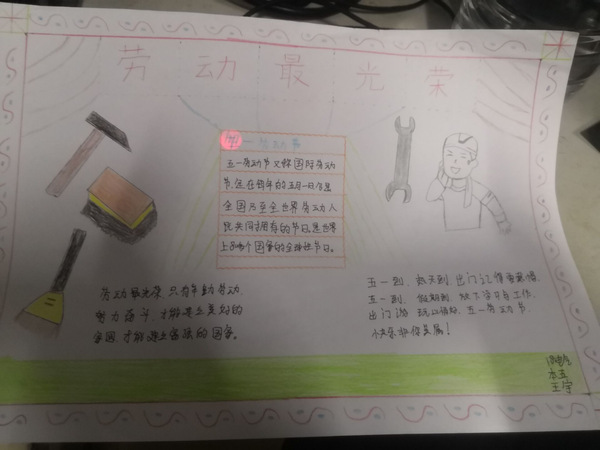 劳动最光荣
五一劳动节
五一劳动节又称国际劳动
节,是在每年的五月一日。它是
全国乃至全世界劳动人
民共同拥有的节日,是世界
上80多个国家的全球性节日。
劳动最光荣,只有辛勤劳动,
努力奋斗,才能建立美好的
家园,才能建立富强的国家。
五一到,
五一到,假期到,放下学习与工作,
出门游玩心情好,五一劳动节,
快乐和你
本五
王宇